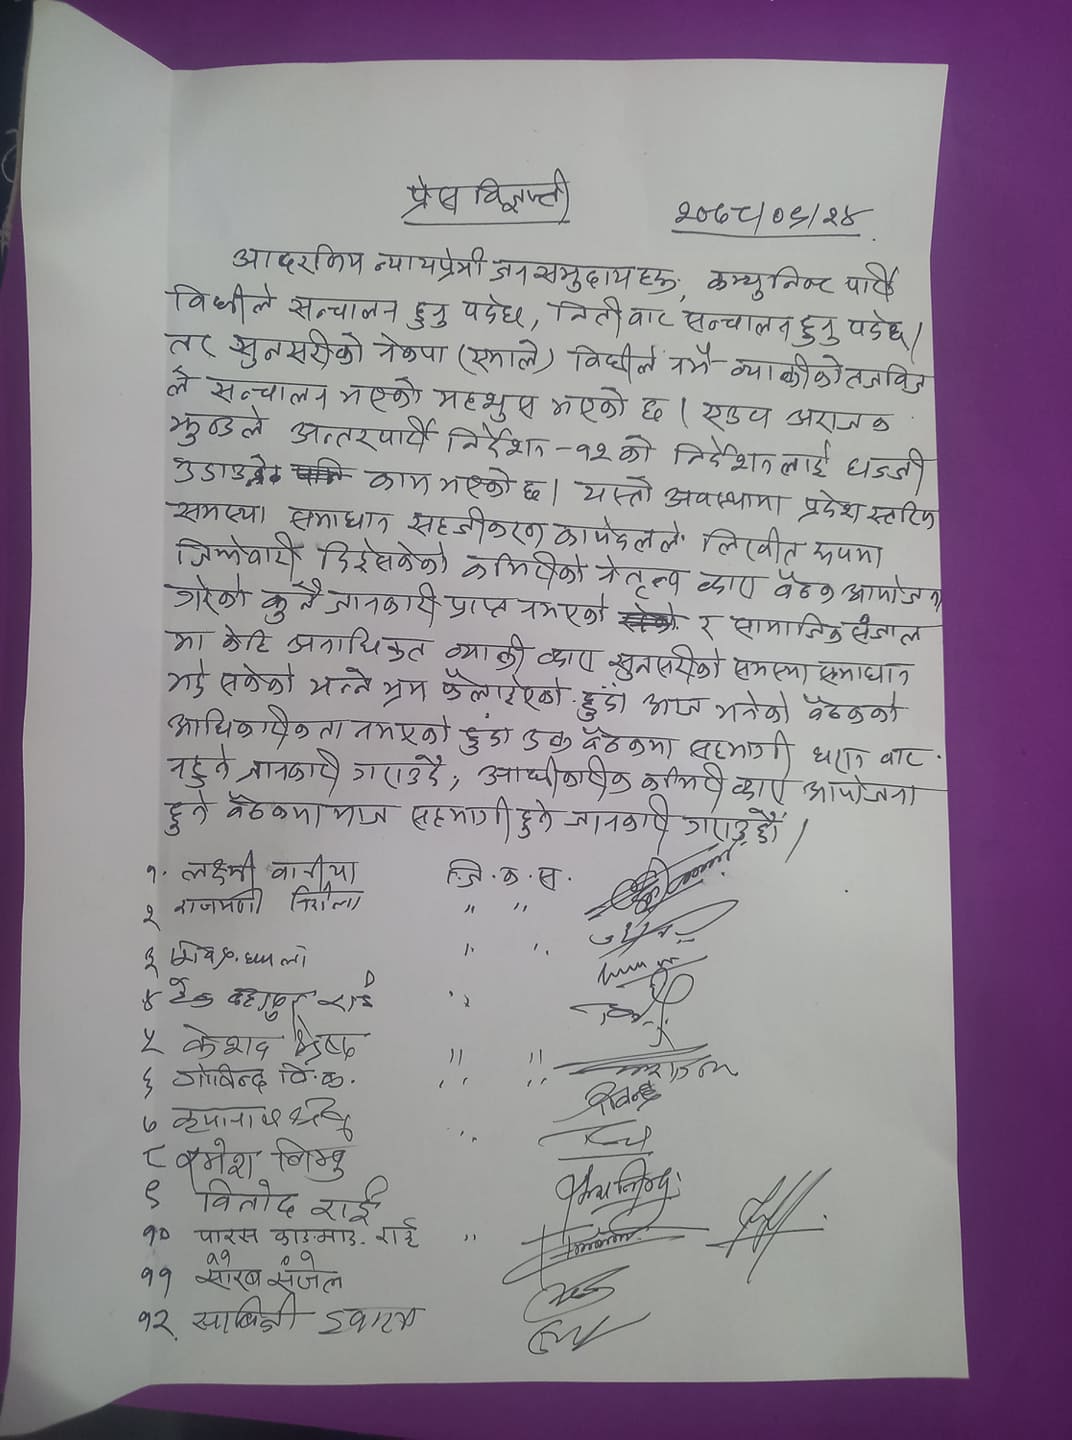 प्रेस विज्ञप्ती
२०७८/०६/२४
आदरणिय न्यायप्रेमी जनसमुदायहरु, कम्युनिष्ट पार्टी
विधीले सन्चालन हुनु पर्दछ, निती बाट सन्चालन हुनु पर्दछ।
तर सुनसरीको नेकपा (एमाले) विधीले नभै व्याक्तीको तजविज
ले सन्चालन भएको महशुस भएको छ। एउटा अराजक
झुन्डले अन्तरपार्टी निर्देशन -१२ को निर्देशन लाई धज्जी
उडाउने काम भएको छ। यस्तो अवस्थामा प्रदेश स्तरिय
समस्या समाधान सहजीकरण कार्यदलले लिखीत रुपमा
जिम्मेवारी दिईसकेको कमिटीको नेतृत्व द्वारा बैठक आयोजना
गरेको कुनै जानकारी प्राप्त नभएको र सामाजिक संजाल
मा केहि अनाधिकृत व्याक्ती द्वारा सुनसरीको समस्या समाधान
भई सकेको भन्ने भ्रम फैलाईएको हुंदा आज भनेको बैठकको
आधिकारीकता नभएको हुंदा उक्त बैठकमा सहभागी धरान बाट
नहुने जानकारी गराउदै, आधीकारीक कमिटी द्वारा आयोजना
हुने बैठकमा मात्र सहभागी हुने जानकारी गराउछौं।
१. लक्ष्मी वानीया जि.क.स.
२ राजमणी निरौला " "
३ " "
४ टेक बहादुर राई "
५ केशव श्रेष्ठ " "
६ गोविन्द वि.क. " "
७ कृपानाथ "
८ रमेश लिम्बु
९ विनोद राई
१० पारस राई "
११ सौरब संजेल
१२. साबित्री